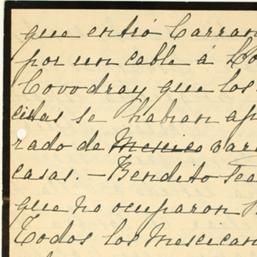 que entró Carran
por un cable á
Covodray que los
se habian ap
rado de Mexico
casas. — Bendito sea
que no ocuparon
Todos los mexican